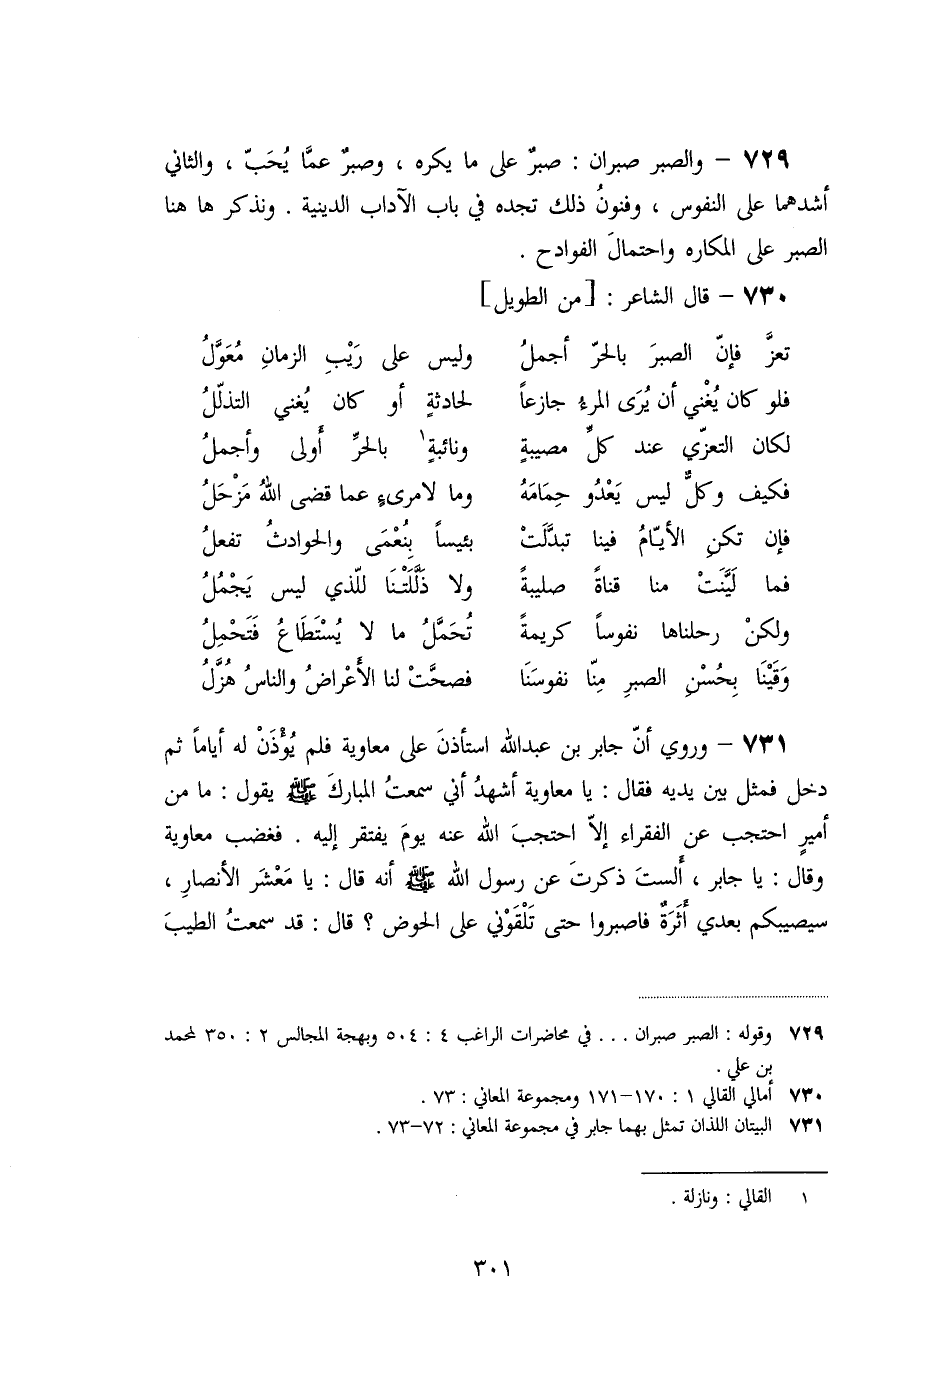 ٧٢٩ – والصبر صبران : صبرٌ على ما يكره ، وصبرٌ عمَّا يُحَبّ ، والثاني
أشدهما على النفوس ، وفنونُ ذلك تجده في باب الآداب الدينية . ونذكر ها هنا
الصبر على المكاره واحتمالَ الفوادح .
٧٣٠ – قال الشاعر : [من الطويل]
تعزَّ فإنّ الصبرَ بالحرّ أجملُ وليس على رَيْبِ الزمانِ مُعَوَّلُ
فلو كان يُغْني أن يُرَى المرءُ جازعاً لحادثةٍ أو كان يُغني التذلّلُ
لكان التعزّي عند كلِّ مصيبةٍ ونائبةٍ١ بالحرِّ أَولى وأجملُ
فكيف وكلٌّ ليس يَعْدُو حِمَامَهُ وما لامرىءٍ عما قضى اللهُ مَزْحَلُ
فإن تكنِ الأيّامُ فينا تبدَّلَتْ بئيساً بِنُعْمَى والحوادثُ تفعلُ
فما لَيَّنَتْ منا قناةً صليبةً ولا ذَلَّلَتْنَا للّذي ليس يَجْمُلُ
ولكنْ رحلناها نفوساً كريمةً تُحَمَّلُ ما لا يُسْتَطَاعُ فَتَحْمِلُ
وَقَيْنَا بِحُسْنِ الصبرِ مِنّا نفوسَنَا فصحَّتْ لنا الأَعْراضُ والناسُ هُزَّلُ
٧٣١ – وروي أنّ جابر بن عبدالله استأذنَ على معاوية فلم يُؤْذَنْ له أياماً ثم
دخل فمثل بين يديه فقال : يا معاوية أشهدُ أني سمعتُ المباركَ ﷺ يقول : ما من
أميرٍ احتجب عن الفقراء إلاّ احتجبَ الله عنه يومَ يفتقر إليه . فغضب معاوية
وقال : يا جابر ، أَلستَ ذكرتَ عن رسول الله ﷺ أنه قال : يا مَعْشَر الأنصارِ ،
سيصيبكم بعدي أَثَرَةٌ فاصبروا حتى تَلْقَوْني على الحوض ؟ قال : قد سمعتُ الطيبَ
٧٢٩ وقوله : الصبر صبران . . . في محاضرات الراغب ٤ : ٥٠٤ وبهجة المجالس ٢ : ٣٥٠ لمحمد
بن علي .
٧٣٠ أمالي القالي ١ : ١٧٠–١٧١ ومجموعة المعاني : ٧٣ .
٧٣١ البيتان اللذان تمثل بهما جابر في مجموعة المعاني : ٧٢–٧٣ .
١ القالي : ونازلة .
٣٠١